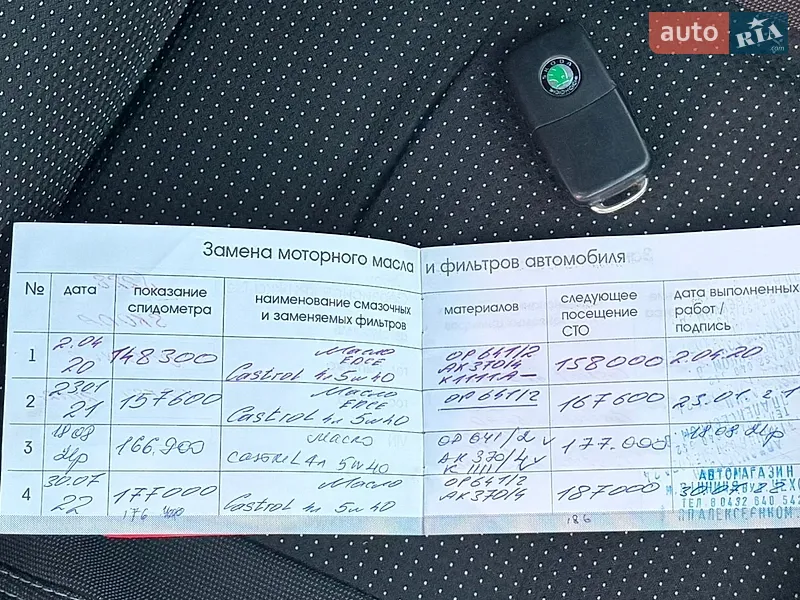 auto RIA .com
ŠKODA
Замена моторного масла и фильтров автомобиля
№ дата показание спидометра наименование смазочных и заменяемых фильтров материалов следующее посещение СТО дата выполненных работ / подпись
1 2.04 20 148300 Масло EDGE Castrol 4л 5w40 OP 641/2 AK 370/4 K1111A 158000 2.04.20
2 23.01 21 157600 Масло EDGE Castrol 4л 5w40 OP 641/2 167600 23.01.21
3 18 08 166.900 Масло Castrol 4л 5w40 OP 641/2 v AK 370/4 v K 1111 v 177.000 18 08
4 30.07 22 177000 Масло Castrol 4л 5w40 OP 641/2 AK 370/4 187000 30.07.22
176 186
АВТОМАГАЗИН
ТЕЛ 8 0432 640 542